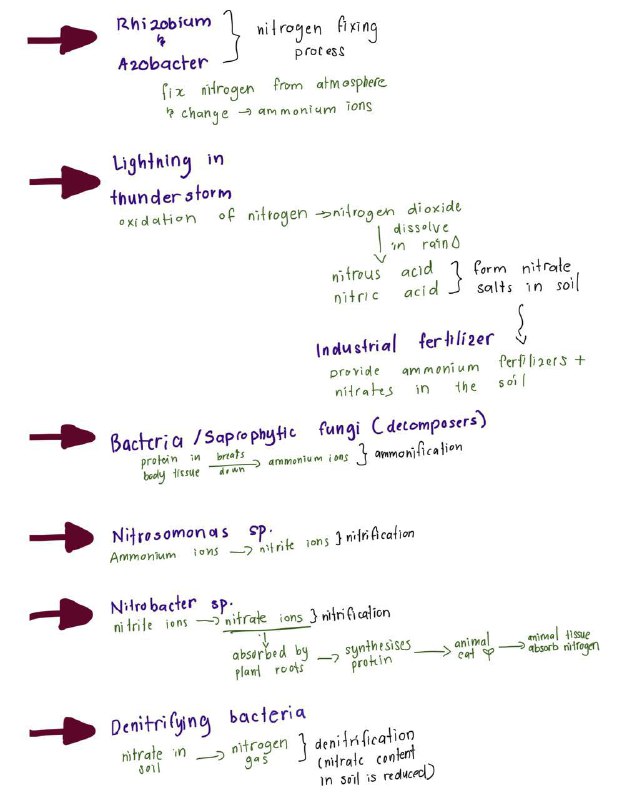 Rhizobium
&
Azobacter } nitrogen fixing process
fix nitrogen from atmosphere
& change → ammonium ions
Lightning in
thunderstorm
oxidation of nitrogen → nitrogen dioxide
↓ dissolve
in rain
nitrous acid
nitric acid } form nitrate
salts in soil
Industrial fertilizer
provide ammonium fertilizers +
nitrates in the soil
Bacteria / Saprophytic fungi (decomposers)
protein in body tissue breaks down → ammonium ions } ammonification
Nitrosomonas sp.
Ammonium ions → nitrite ions } nitrification
Nitrobacter sp.
nitrite ions → nitrate ions } nitrification
absorbed by plant roots → synthesises protein → animal eat → animal tissue absorb nitrogen
Denitrifying bacteria
nitrate in soil → nitrogen gas } denitrification
(nitrate content
in soil is reduced)